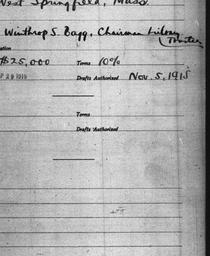 West Springfield, Mass.
Winthrop S. Bagg, Chairman Library
Trustees
$25,000 Terms 10%
Drafts Authorized Nov. 5, 1915
Terms
Drafts Authorized